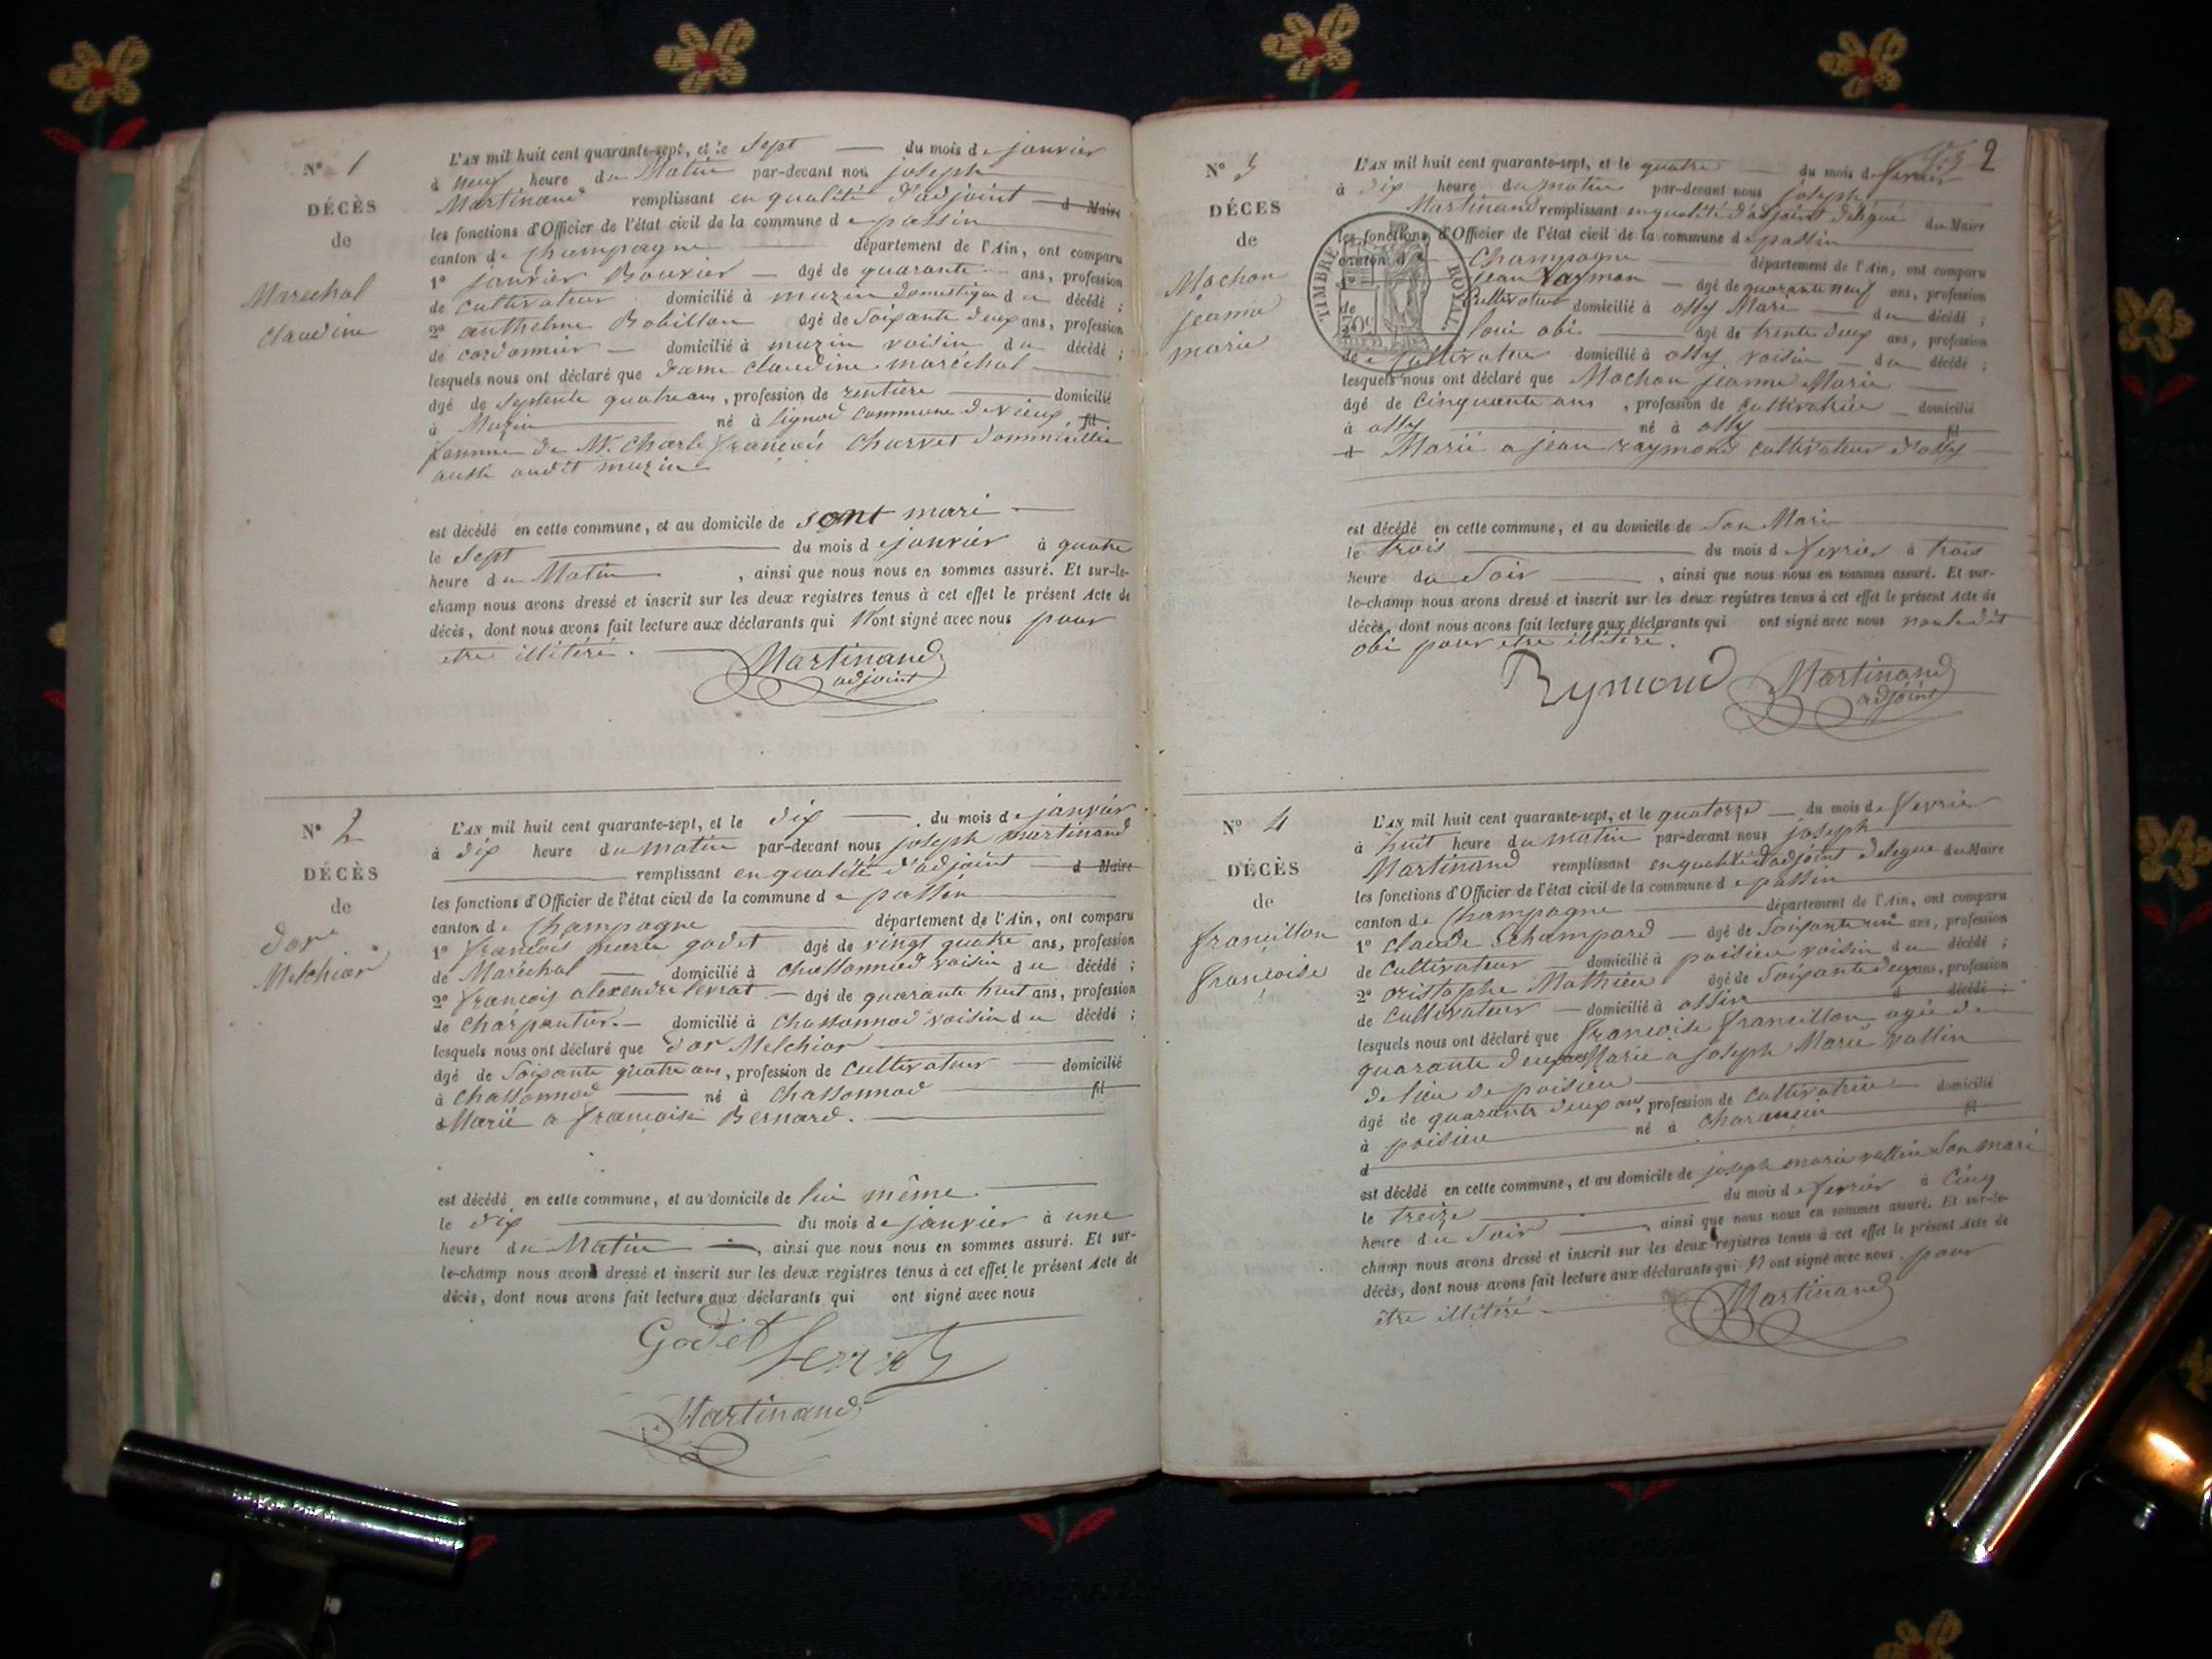 N° 1
DÉCÈS
de
Marechal
claudine
L'AN mil huit cent quarante-sept, et le Sept du mois de janvier
à neuf heure du Matin par-devant nou joseph
Martinand remplissant en qualité d'adjoint d Maire
les fonctions d'Officier de l'état civil de la commune de passin
canton de Champagne département de l'Ain, ont comparu
1° janvier Bouvier âgé de quarante ans, profession
de cultivateur domicilié à muzin domestique du décédé ;
2° anthelme Robillon âgé de Soixante deux ans, profession
de cordonnier domicilié à muzin voisin du décédé ;
lesquels nous ont déclaré que dame claudine maréchal
âgé de Septente quatre ans, profession de rentière domicilié
à Muzin né à lignod commune de vieux fil
femme de Mr. Charle françois Charvet dommicillié
aussi audit muzin
est décédé en cette commune, et au domicile de sont mari
le Sept du mois de janvier à quatre
heure du Matin , ainsi que nous nous en sommes assuré. Et sur-le-
champ nous avons dressé et inscrit sur les deux registres tenus à cet effet le présent Acte de
décès, dont nous avons fait lecture aux déclarants qui n'ont signé avec nous pour
etre illitéré.
Martinand
adjoint
N° 2
DÉCÈS
de
dor
Melchior
L'AN mil huit cent quarante-sept, et le dix du mois de janvier
à dix heure du matin par-devant nous joseph martinand
remplissant en qualité d'adjoint d Maire
les fonctions d'Officier de l'état civil de la commune de passin
canton de Champagne département de l'Ain, ont comparu
1° francois marie godet âgé de vingt quatre ans, profession
de Maréchal domicilié à chassonnod voisin du décédé ;
2° francois alexendre serrat âgé de quarante huit ans, profession
de Charpentier domicilié à Chassonnod voisin du décédé ;
lesquels nous ont déclaré que dor Melchior
âgé de Soixante quatre ans, profession de cultivateur domicilié
à Chassonnod né à Chassonnod fil
d Marié a francoise Bernard.
est décédé en cette commune, et au domicile de lui même
le dix du mois de janvier à une
heure du Matin , ainsi que nous nous en sommes assuré. Et sur-
le-champ nous avons dressé et inscrit sur les deux registres tenus à cet effet le présent Acte de
décès, dont nous avons fait lecture aux déclarants qui ont signé avec nous
Godet Serrat
Martinand
2
N° 3
DÉCES
de
Machon
jeanne
marie
TIMBRE ROYAL
L'AN mil huit cent quarante-sept, et le quatre du mois de fevrier
à dix heure du matin par-devant nous joseph
Martinand remplissant en qualité d'adjoint délégué du Maire
les fonctions d'Officier de l'état civil de la commune de passin
canton de Champagne département de l'Ain, ont comparu
1° jean Raymon âgé de quarante neuf ans, profession
de Cultivateur domicilié à ossy Mari du décédé ;
2° loui obi âgé de trente deux ans, profession
de Cultivateur domicilié à ossy voisin du décédé ;
lesquels nous ont déclaré que Machon jeanne Marie
âgé de Cinquante ans , profession de cultivatrice domicilié
à ossy né à ossy fil
d Marié a jean raymond cultivateur d'ossy
est décédé en cette commune, et au domicile de Son Mari
le trois du mois de fevrier à trois
heure du Soir , ainsi que nous nous en sommes assuré. Et sur-
le-champ nous avons dressé et inscrit sur les deux registres tenus à cet effet le présent Acte de
décès, dont nous avons fait lecture aux déclarants qui ont signé avec nous non ledit
obi pour etre illitéré.
Rymond Martinand
adjoint
N° 4
DÉCÈS
de
francillon
françoise
L'AN mil huit cent quarante-sept, et le quatorze du mois de fevrier
à huit heure du matin par-devant nous joseph
Martinand remplissant en qualité d'adjoint delegue du Maire
les fonctions d'Officier de l'état civil de la commune de passin
canton de Champagne département de l'Ain, ont comparu
1° claude Schampard âgé de Soixante un ans, profession
de Cultivateur domicilié à poisieu voisin du décédé ;
2° cristophe Mathieu âgé de Soixante deux ans, profession
de Cultivateur domicilié à ossin d décédé ;
lesquels nous ont déclaré que françoise francillon agée de
quarante deux ans Marie a joseph Marie vallin
de lieu de poisieu
âgé de quarante deux ans, profession de cultivatrice domicilié
à poisieu né à Charancin fil
d
est décédé en cette commune, et au domicile de joseph marie vallin Son mari
le treize du mois de fevrier à Cinq
heure du Soir , ainsi que nous nous en sommes assuré. Et sur-le-
champ nous avons dressé et inscrit sur les deux registres tenus à cet effet le présent Acte de
décès, dont nous avons fait lecture aux déclarants qui n'ont signé avec nous pour
être illitéré
Martinand